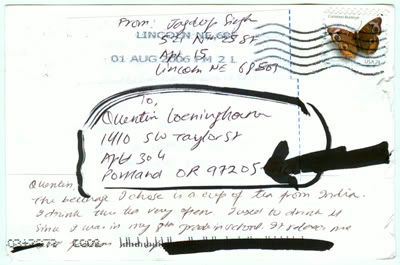 From: Jagdeep Singh
521 N 25 St
Apt 15
Lincoln NE 68503
LINCOLN NE 685
01 AUG 2006 PM 2 L
USA 24
To,
Quentin
1410 SW Taylor St
Apt 304
Portland OR 97205
Quentin,
The beverage I chose is a cup of tea from India.
I drink this tea very often. I used to drink it
since I was in my 9th grade in school. It relaxes me